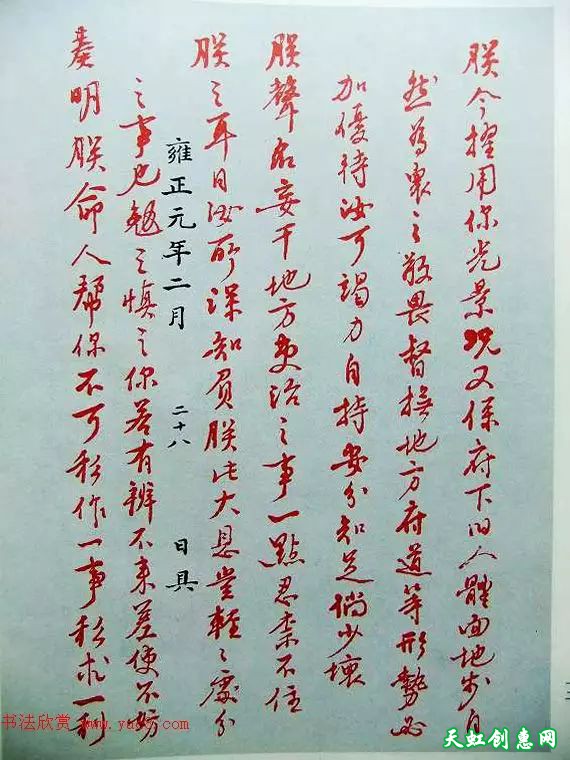 朕今擢用你光景況又係府下旧人體面地步自
然爲衆之敬畏督撫地方府道等形勢必
加優待汝可竭力自持安分知足倘少壞
朕聲名妄干地方吏治之事一點忍柰不住
朕之耳目汝所深知負朕此大恩豈輕之處分
雍正元年二月 二十八 日具
之事也勉之慎之你若有辦不来差使不妨
奏明朕命人幫你不可私作一事私求一利
书法欣赏 www.yac8.com
天虹创惠网